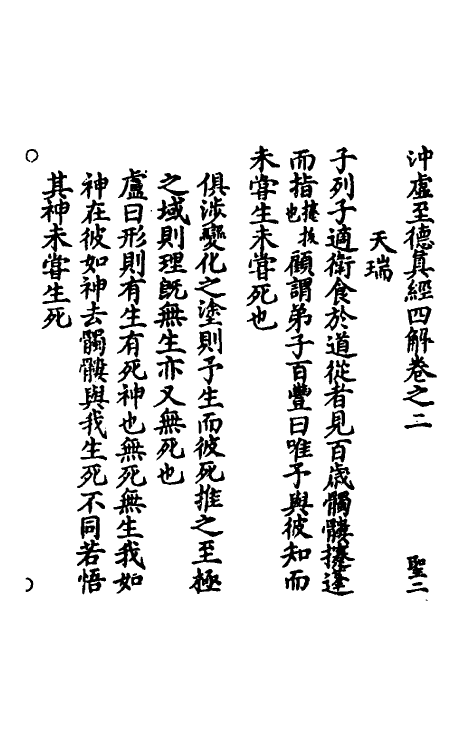 沖虛至德真經四解卷之二　聖二
天瑞
子列子適衛食於道從者見百歲髑髏攓蓬
而指攓拔也顧謂弟子百豐曰唯予與彼知而
未嘗生未嘗死也
俱涉變化之塗則予生而彼死推之至極
之域則理既無生亦又無死也
盧曰形則有生有死神也無死無生我如
神在彼如神去髑髏與我生死不同若悟
其神未嘗生死